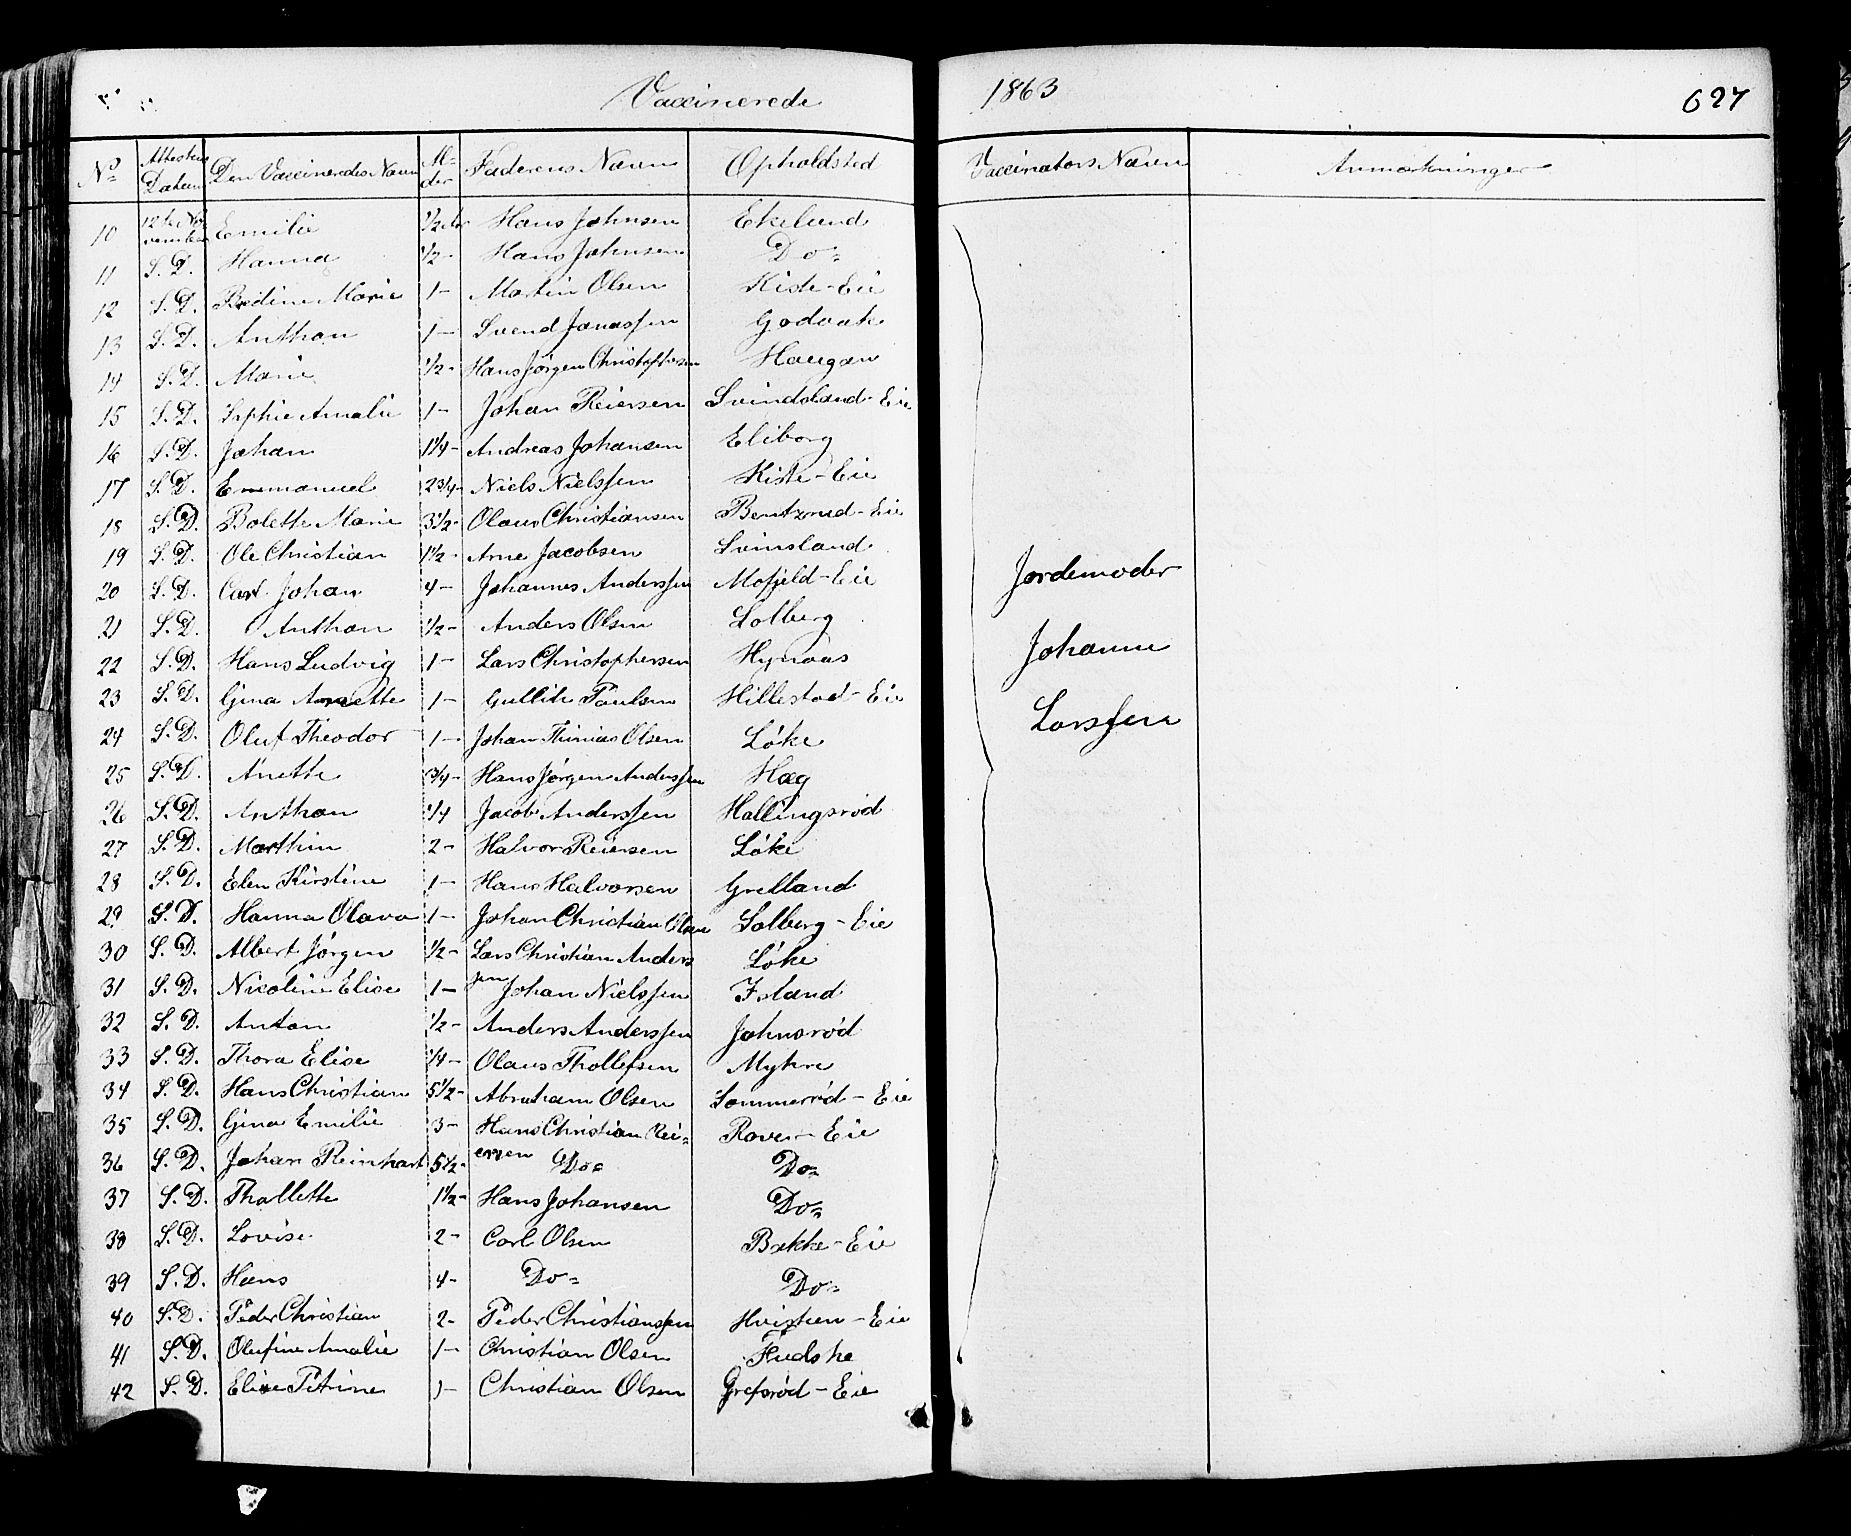 Vaccinerede 1863 627
No Attestens Datum Den Vaccineredes Navn Alder Faderens Navn Opholdsted Vaccinators Navn Anmærkninger
10 12te November Emilie 1/2 Hans Johnsen Ekelund
11 S. D. Hanna 1/2 - Hans Johnsen Do =
12 S. D. Bredine Marie 1 - Martin Olsen Kiste - Eie
13 S. D. Anthon 1 - Svend Jonassen Godvak
14 S. D. Marie 1/2 - Hans Jørgen Christophersen Haugan
15 S. D. Sophie Amalie 1 - Johan Reiersen Svindsland - Eie
16 S. D. Johan 1 1/4 - Andreas Johansen Eliborg
17 S. D. Emmanuel 2 3/4 - Niels Nielssen Kiste - Eie
18 S. D. Bolette Marie 3 1/2 - Olaus Christiansen Bentzrud - Eie
19 S. D. Ole Christian 1 1/2 - Arne Jacobsen Svinsland
20 S. D. Carl Johan 4 - Johannes Anderssen Mofjeld - Eie
21 S. D. Anthon 1/2 - Anders Olsen Solberg
22 S. D. Hans Ludvig 1 - Lars Christophersen Hynaas
23 S. D. Gina Annette 1 - Gullik Paulsen Hillestad - Eie
24 S. D. Oluf Theodor 1 - Johan Olsen Løke
25 S. D. Anette 3/4 - Hans Jørgen Anderssen Hæg
26 S. D. Anthon 1/4 Jacob Anderssen Hallingsrød
27 S. D. Marthin 2 - Halvor Reiersen Løke
28 S. D. Elen Kirstine 1 - Hans Halvorsen Grelland
29 S. D. Hanna Olava 1 - Johan Christian Olsen Solberg - Eie
30 S. D. Albert Jørgen 1/2 - Lars Christian Anderssen Løke
31 S. D. Nicoline Elise 1 - Johan Nielssen Island
32 S. D. Anton 1/2 - Anders Anderssen Johnsrød
33 S. D. Thora Elise 1/4 - Olaus Thollefsen Myhre
34 S. D. Hans Christian 5 1/2 - Abraham Olsen Sommerød - Eie
35 S. D. Gina Emilie 3 - Hans Christian Rei=ersen Rove - Eie
36 S. D. Johan Reinhart 5 1/2 - Do = Do =
37 S. D. Thollette 1 1/2 - Hans Johansen Do =
38 S. D. Lovise 2 - Carl Olsen Bække - Eie
39 S. D. Hans 4 - Do = Do =
40 S. D. Peder Christian 2 - Peder Christianssen Hvisten - Eie
41 S. D. Olufine Amalie 1 - Christian Olsen Fudske
42 S. D. Elise Petrine 1 - Christian Olsen Grefsrød - Eie
Jordemoder
Johanne
Larssen